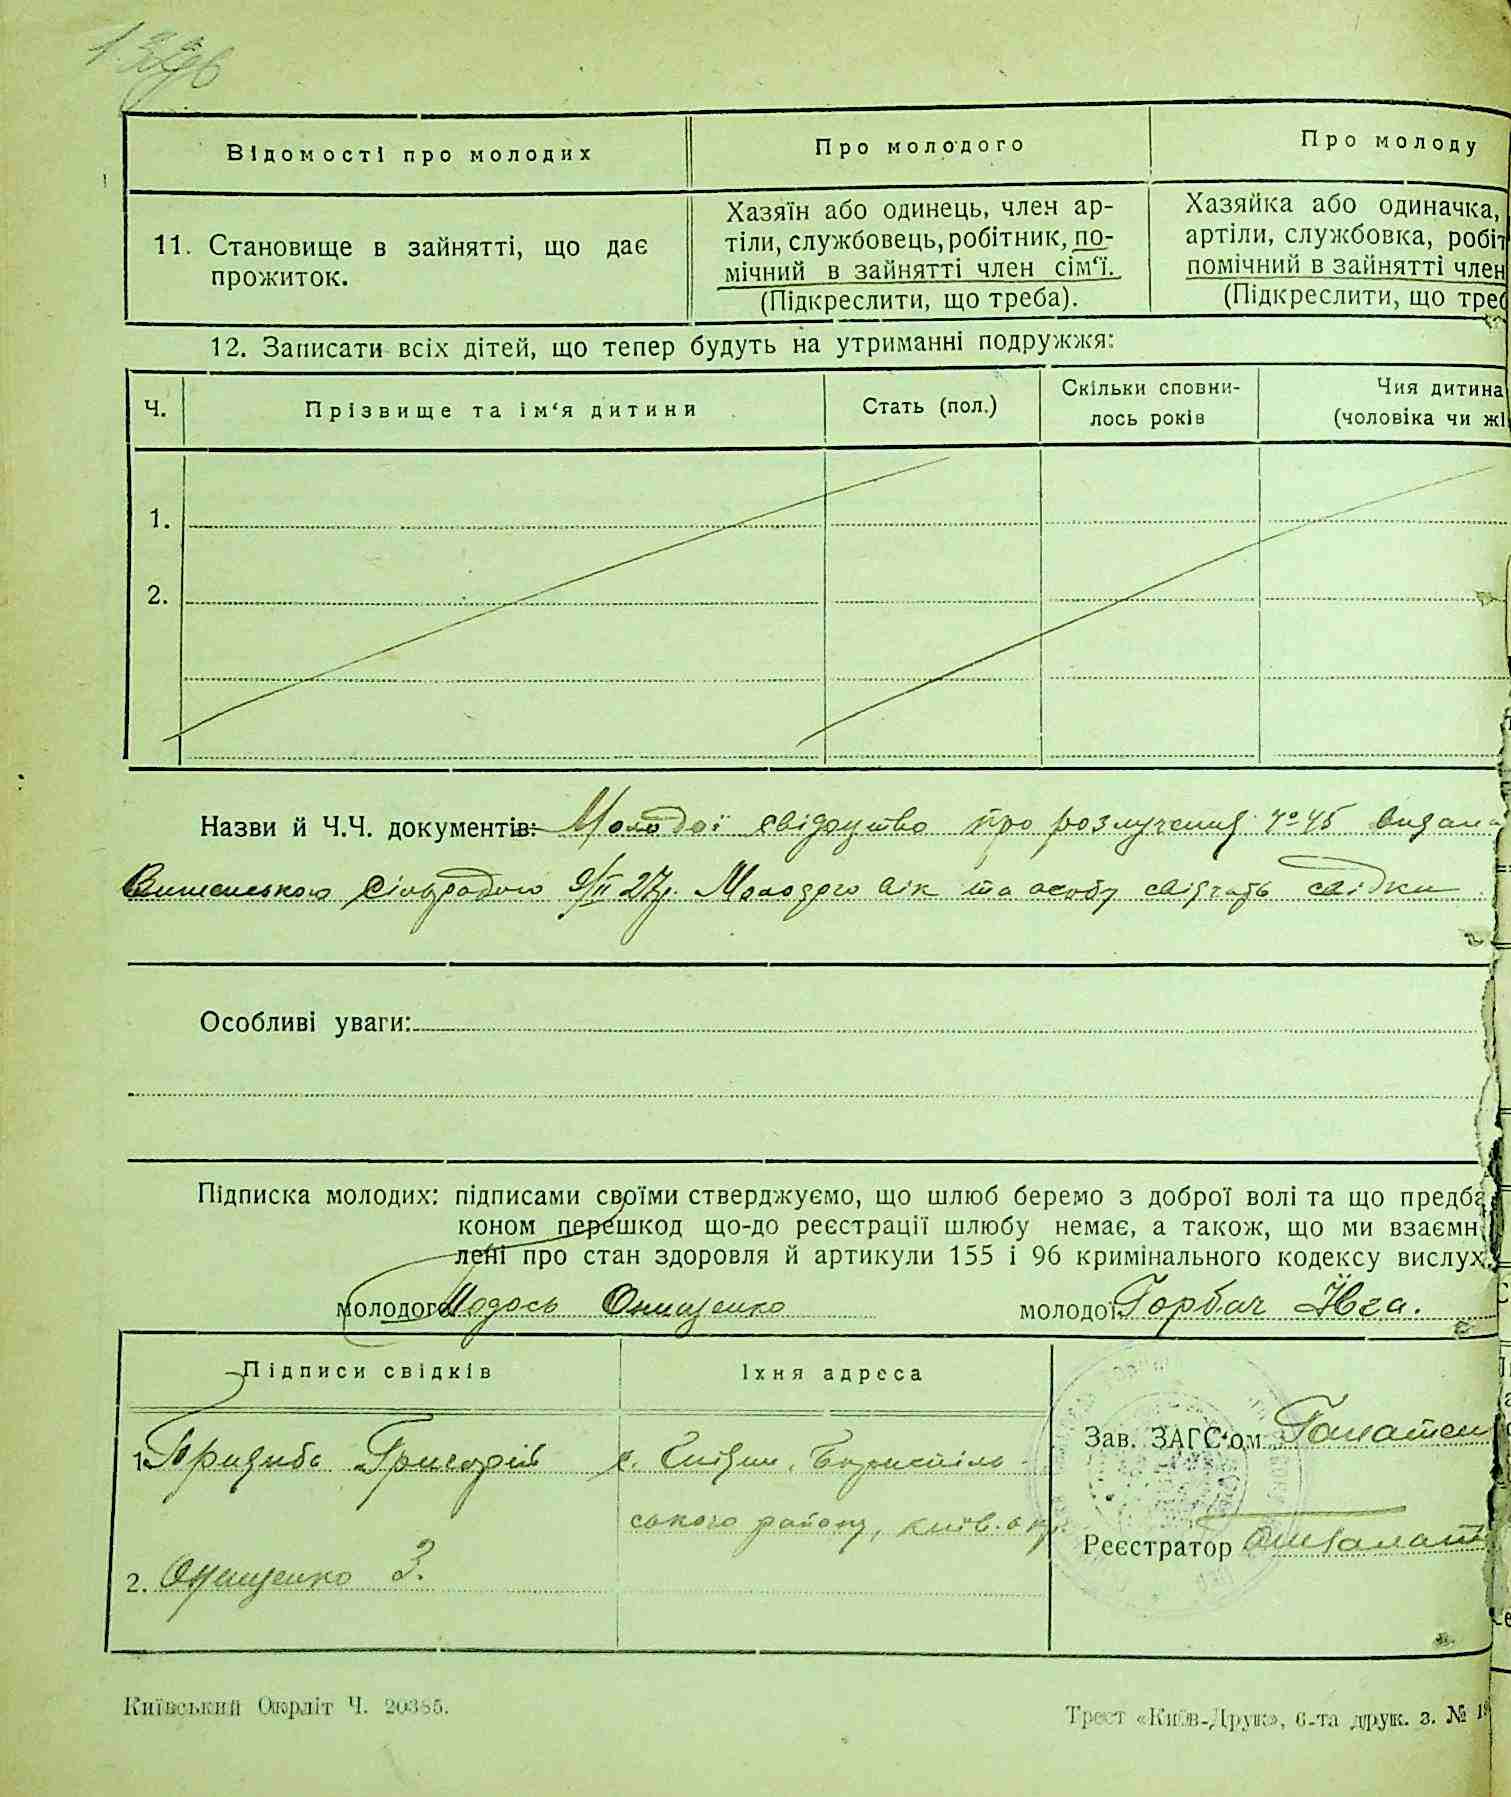 Відомості про молодих
Про молодого
Про молоду
11. Становище в зайнятті, що дає
прожиток.
Хазяїн або одинець, член ар-
тіли, службовець, робітник, по-
мічний в зайнятті член сім'ї.
(Підкреслити, що треба).
Хазяйка або одиначка,
артіли, службовка, робіт
помічний в зайнятті член
(Підкреслити, що треб
12. Записати всіх дітей, що тепер будуть на утриманні подружжя:
Ч.
Прізвище та ім'я дитини
Стать (пол.)
Скільки сповни-
лось років
Чия дитина
(чоловіка чи жі
1.
2.
Назви й Ч.Ч. документів: Молодої свідоцтво про розлучення
Сільрадою 9/II 27р. Молодого вік та особу свідчать свідки
Особливі уваги:
Підписка молодих: підписами своїми стверджуємо, що шлюб беремо з доброї волі та що предба
коном перешкод що-до реєстрації шлюбу немає, а також, що ми взаємн
лені про стан здоровля й артикули 155 і 96 кримінального кодексу вислух
молодого Онищенко
молодої Горбач
Підписи свідків
Їхня адреса
1. Григорій
с. Бориспіль-
ського району, київ. окр.
2. Онищенко З.
Зав. ЗАГС'ом
Реєстратор
Київський Окрліт Ч. 20385.
Трест «Київ-Друк», 6-та друк. з. №